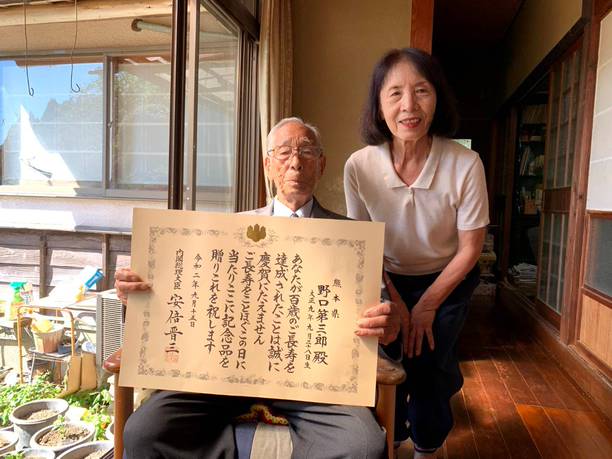 熊本県
野口第三郎 殿
大正九年九月二十八日生
あなたが百歳のご長寿を
達成されたことは誠に
慶賀にたえません
ご長寿をことほぎこの日に
当たりここに記念品を
贈りこれを祝します
令和二年九月十五日
内閣総理大臣 安倍晋三